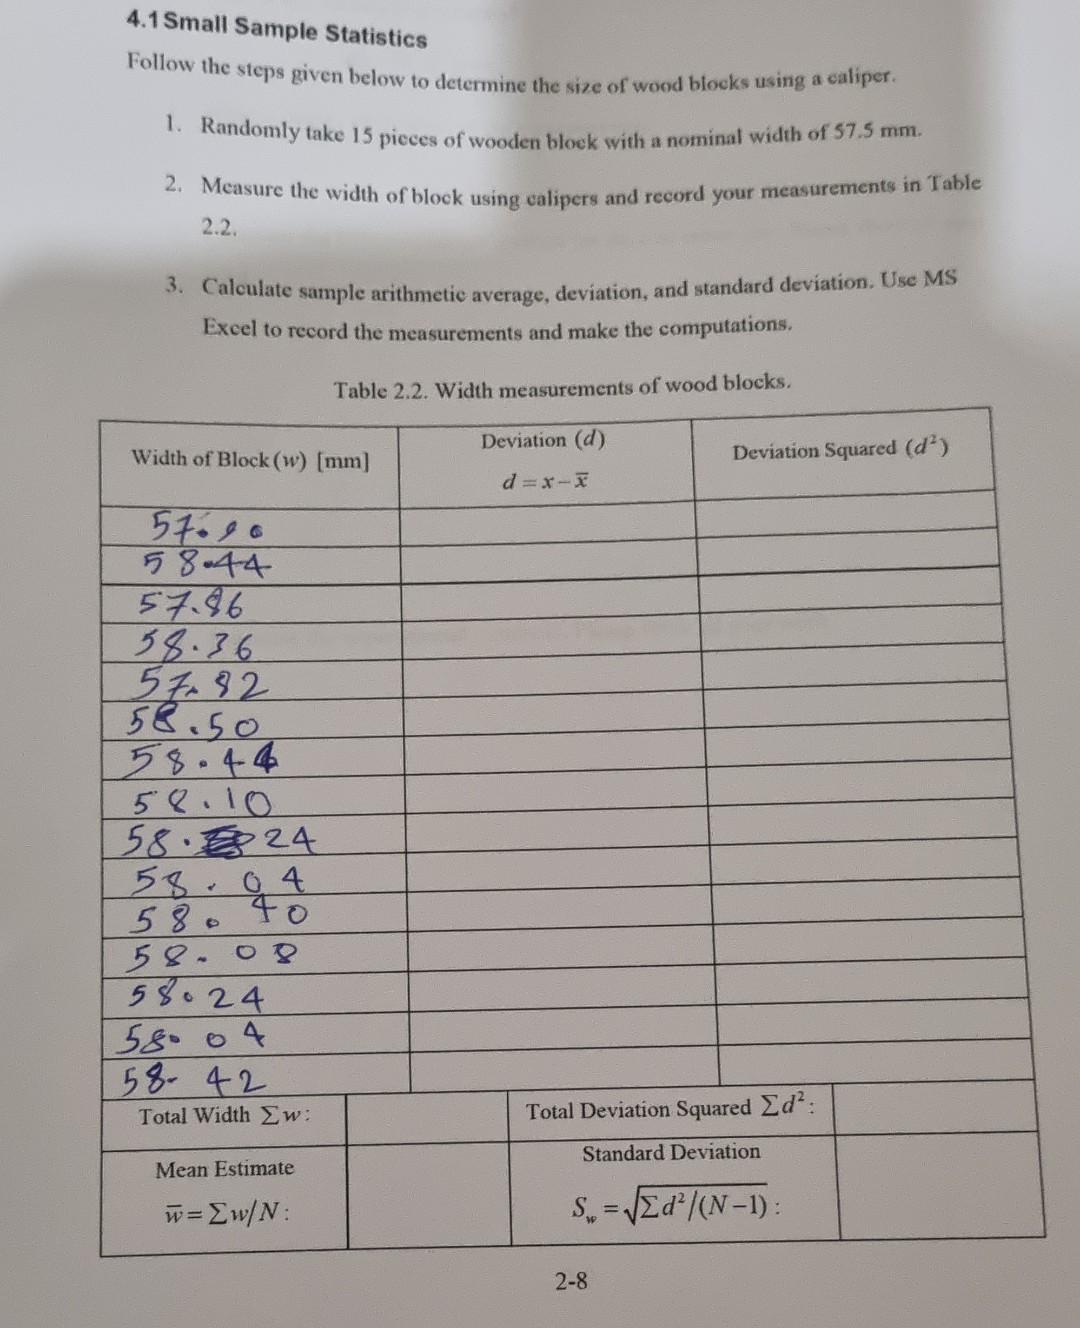 4.1 Small Sample Statistics
Follow the steps given below to determine the size of wood blocks using a caliper.
1. Randomly take 15 pieces of wooden block with a nominal width of 57.5 mm.
2. Measure the width of block using calipers and record your measurements in Table
2.2.
3. Calculate sample arithmetic average, deviation, and standard deviation. Use MS
Excel to record the measurements and make the computations.
Table 2.2. Width measurements of wood blocks.
Width of Block (w) [mm]
Deviation (d)
d = x - x̅
Deviation Squared (d²)
57.90
58.44
57.86
58.36
57.92
58.50
58.44
58.10
58. 24
58.04
58.40
58.08
58.24
58.04
58.42
Total Width Σw:
Total Deviation Squared Σd²:
Mean Estimate
w̅ = Σw/N:
Standard Deviation
S_w = √Σd²/(N-1) :
2-8